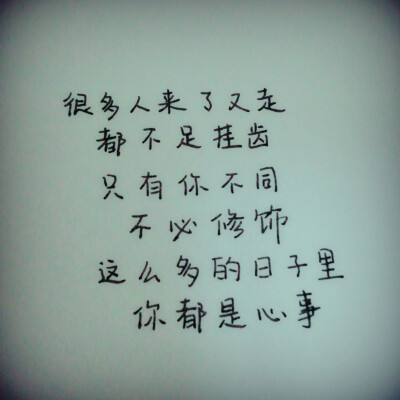 很多人来了又走
都不足挂齿
只有你不同
不必修饰
这么多的日子里
你都是心事